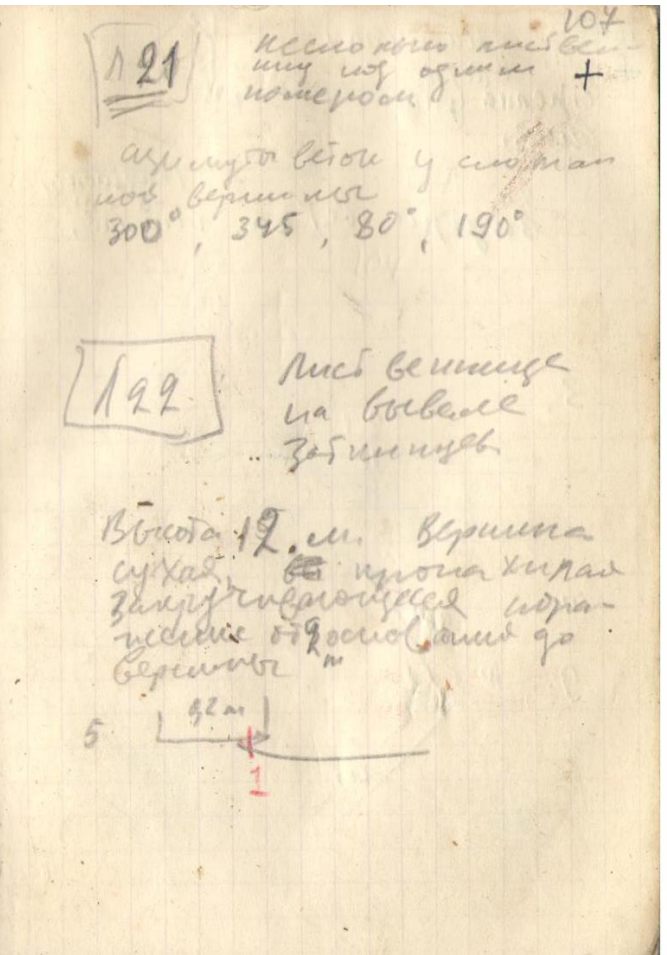 107
Л21
несколько листвен-
ниц под одним +
номером
азимуты веток у сломан
ной вершины
300°, 345, 80°, 190°
Л22
Лиственница
на вывале
Высота 12 м. Вершина
сухая, крона хилая
закручивающееся пора-
жение от основания до
вершины
5
1